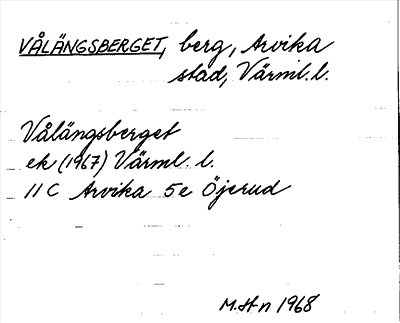 VÅLÄNGSBERGET, berg, Arvika
stad, Värml. l.
Vålängsberget
ek (1967) Värml. l.
11 C Arvika 5e Öjerud
M.H-n 1968